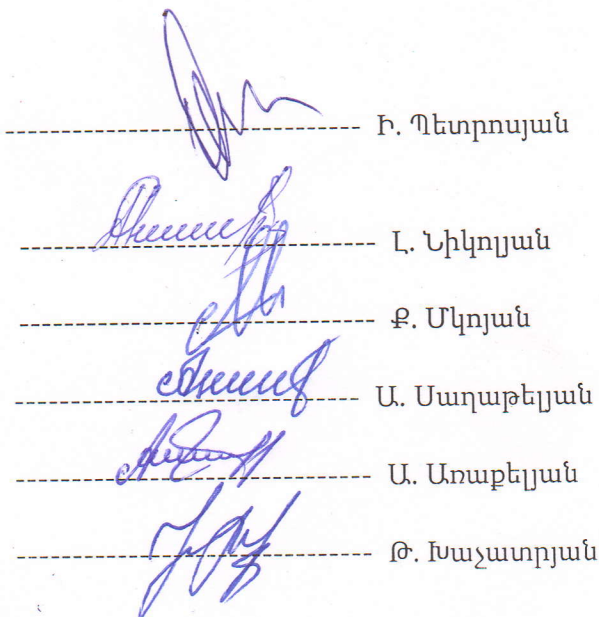 Ի. Պետրոսյան
Լ. Նիկոլյան
Ք. Մկոյան
Ա. Սաղաթելյան
Ա. Առաքելյան
Թ. Խաչատրյան